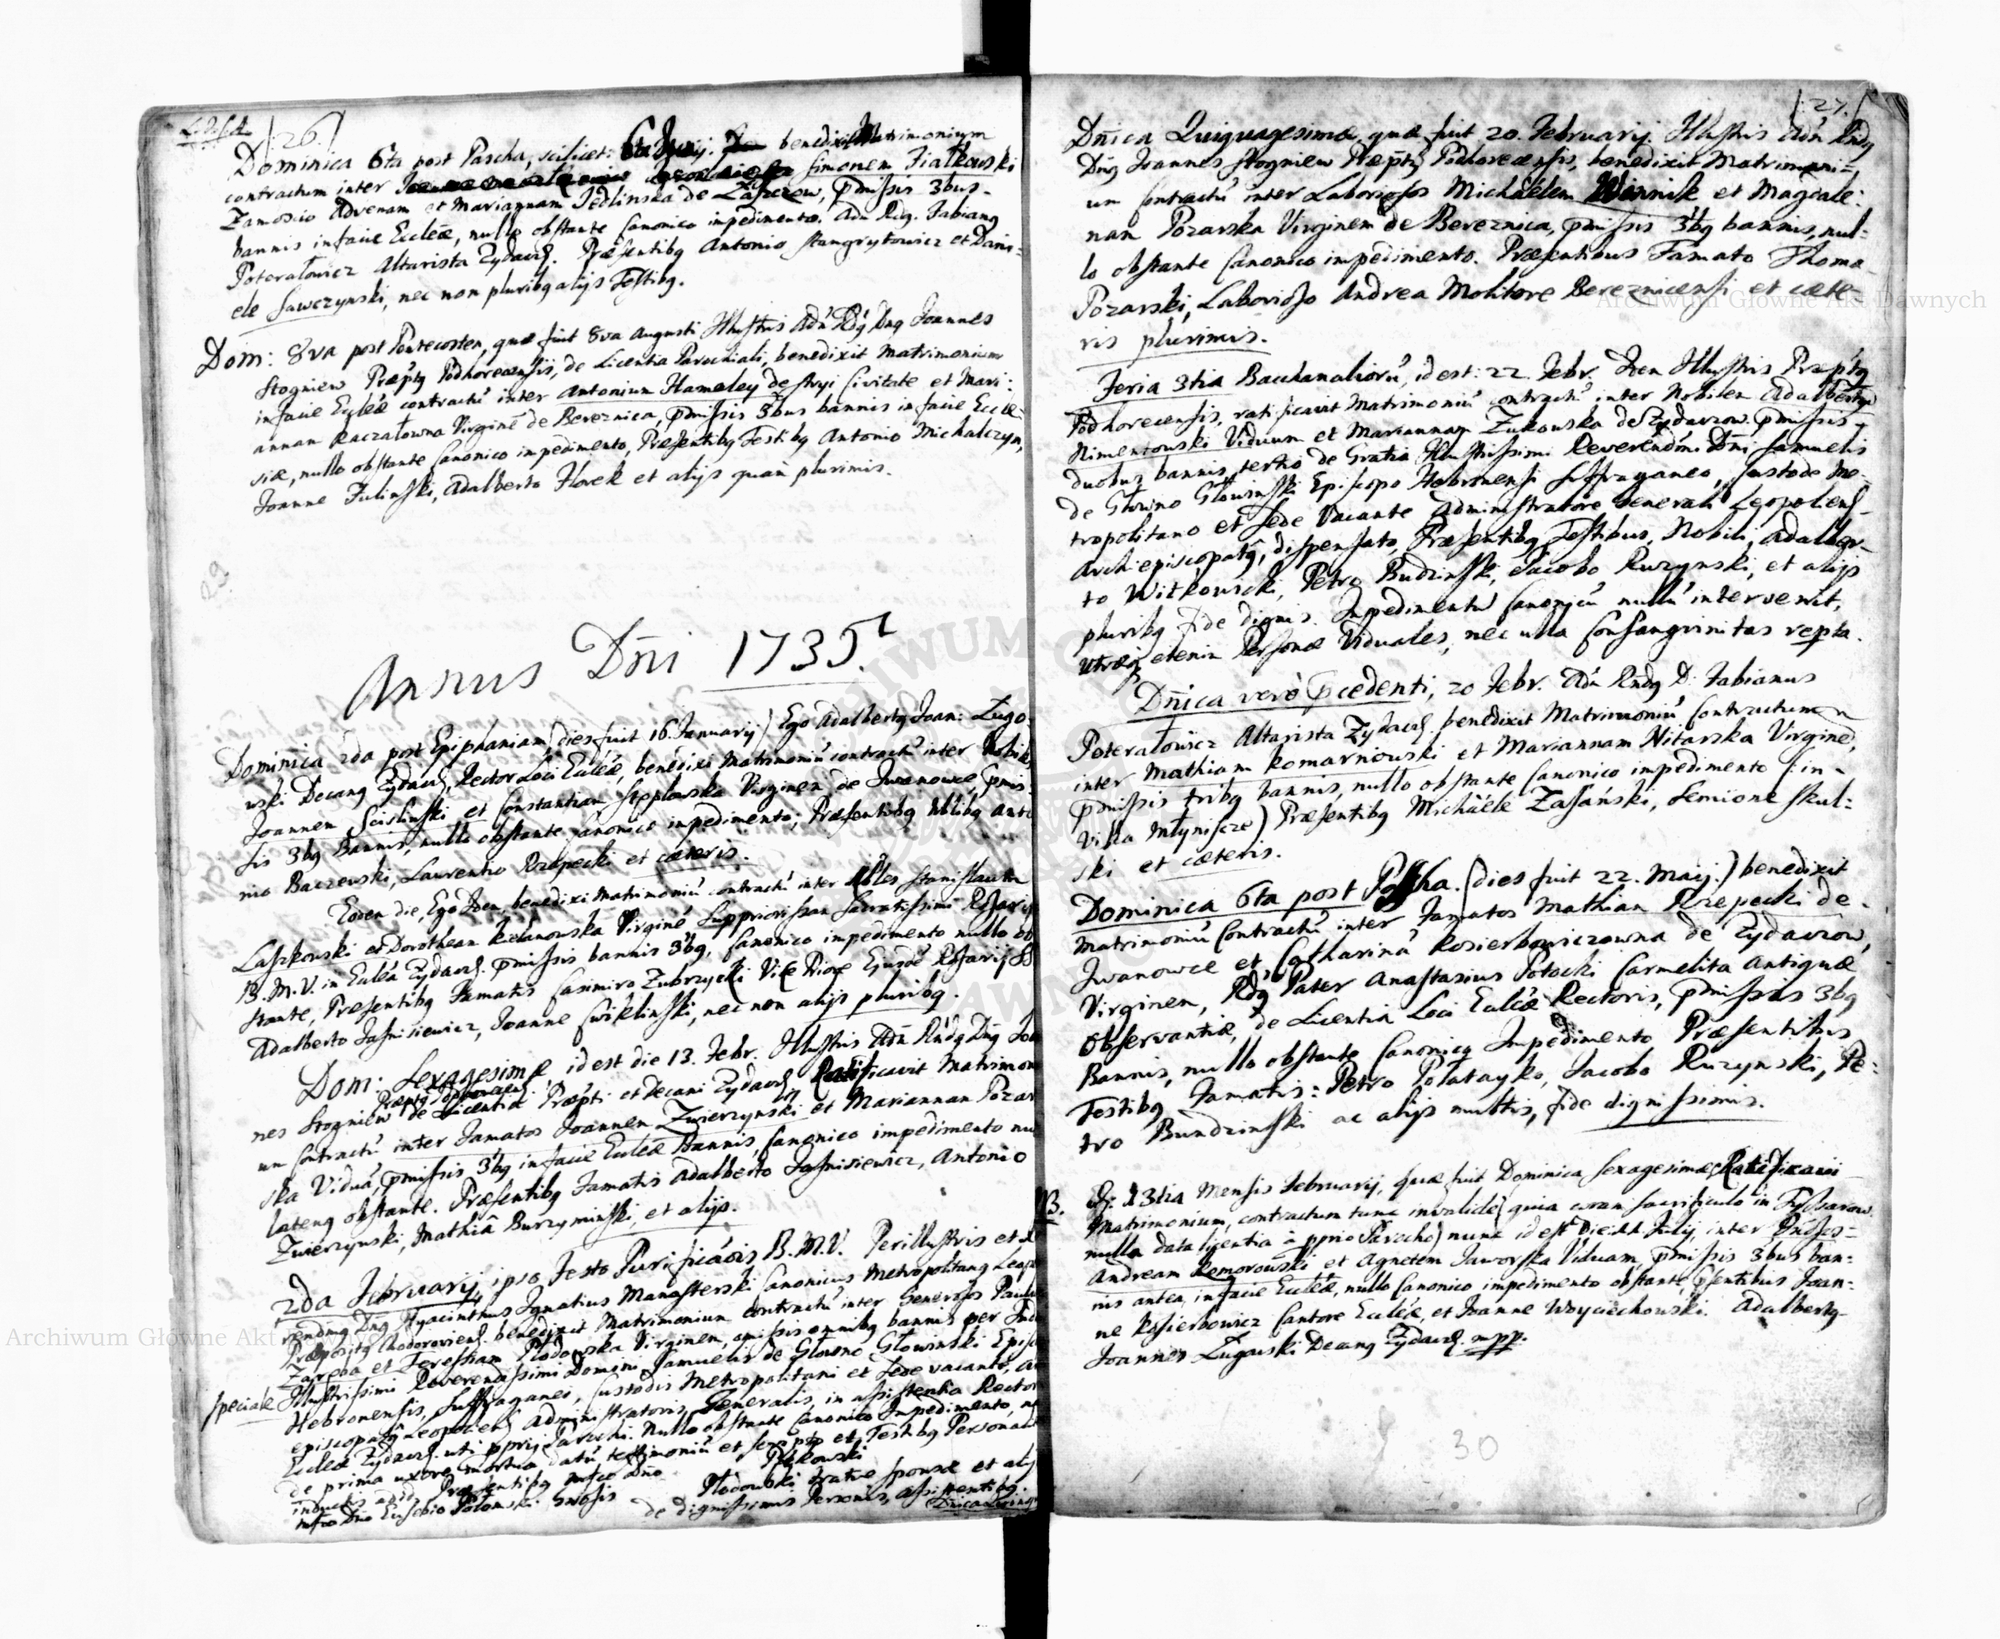 /26/
Dominica 6ta post Pascha, scilicet: benedixi Matrimonium
contractum inter Simonem Fiałkowski
Zamoscio Advenam et Mariannam Jedlinska de Zydaczow, pmissis 3bus
bannis in facie Eccleæ, nullo obstante Canonico impedimento. Adm Rdg. Fabiang
Poterałowicz Altarista Zydacz. Præsentibg Antonio Stangrytowicz et Dani=
ele Sawczynski, nec non pluribg alijs Testibg.
Dom: 8va post Pentecosten, quæ fuit 8va Augusti Illustris Adm Rdg Dng Joannes
Stogniew Præptg Podhorecensis, de Licentia Parochiali, benedixit Matrimonium
in facie Eccleæ contractū inter Antonium Hameley de Stryi Civitate et Mari:
annam Kaczałowna Virginē de Bereznica pmissis 3bus bannis in facie Eccle=
siæ, nullo obstante Canonico impedimento, Præsentibg Testibg Antonio Michalczyn,
Joanne Zulinski, Adalberto Horek et alijs quam plurimis.
29
Annus Dni 1735.
Dominica 2da post Epiphaniam (dies fuit 16 Januarij) Ego Adalbertg Joan: Lugo-
wski Decang Zydacz, Rector Loci Eccleæ, benedixi Matrimoniū contractū inter Nobiles
Joannem Scislinski et Constantiam Steplowska Virginem de Jwanowce, pmis-
sis 3bg Bannis, nullo obstante Canonico impedimento, Præsentibg Nblibg Anto
nio Baczewski, Laurentio Rzepecki et cæteris.
Eodem die, Ego Idem benedixi Matrimoniū contractū inter Nbles Stanislaum
Laszkowski et Dorotheam Virginē Suppriorissam Sacratissimi Rosarij
B. M. V. in Ecclea Zydacz. pmissis bannis 3bg, Canonico impedimento nullo ob
stante, Præsentibg Famatis Casimiro Zubrzycki Vice Priore Ejusdē Rosarij SS
Adalberto Jasnisiewicz, Joanne Cwiklinski, nec non alijs pluribg.
Dom: Sexagesimæ id est die 13. Febr. Illustris Adm Rndg Dng Joan
nes Stogniew Præptg Podhorecens. de Licentia Præpti et Decani Zydacz Ratificavit Matrimoni
um Contractū inter Famatos Joannem Zwierzynski et Mariannam Pozar
ska Viduā, pmissis 3bg in facie Eccleæ Bannis, Canonico impedimento nul
lateng obstante. Præsentibg Famatis Adalberto Jasnisiewicz, Antonio
Zwierzynski, Mathia Burzyminski, et alijs.
2da Februarij, ipso Festo Purificaōis B. M. V. Perillustris et R
rendmg Dng Hyacinthus Ignatius Manasterski Canonicus Metropolitang Leop
Præpositg Chodoroviens. benedixit Matrimonium contractū inter Generosos Paulū
Zareba et Teressiam Płodowska Virginem, omissis omnibg bannis per Ind
speciale Illustrissimi Reverendissimi Domini Samuelis de Głowno Głowinski Episc
Hebronensis, Suffraganei, Custodis Metropolitani et Sede vacante, Ar
episcopatg Leopolien administratoris Generalis, in assistentia Rectoris
Eccleæ Zydacz. uti pprij Parochi. Nullo obstante Canonico Impedimento, n
de prima uxore mortua datū testimoniū et scripto et Testibg Personali
inductis Præsentibg Mfco Dno Pukowski
Mfco Dno Eusebio Potomski Płodowski fratre sponsæ et alij
de dignissimis Personis, assistentibg.
/27./
Dnica Quiquagesimæ, quæ fuit 20. Februarij. Illustris Adm Rndg
Dng Joannes Stogniew Præptg Podhorecensis, benedixit Matrimoni=
um Contractū inter Laboriosos Michaëlem Winnik et Magdale:
nam Pozarska Virginem de Bereznica, pmissis 3bg bannis, nul=
lo obstante Canonico impedimento. Præsentibus Famato Thoma
Pozarski, Laborioso Andrea Molitore Bereznicensi et cæte
ris plurimis.
Feria 3tia Bacchanaliorū, id est: 22 Febr. Idem Illustris Præptg
Podhorecensis, ratificavit Matrimoniū contractū inter Nobilem Adalbertum
Nimentowski Viduum et Mariannam Zukowska de Zydaczow. pmissis
duobus bannis, tertio de Gratia Illustrissimi Reverendmi Dni Samuelis
de Głowno Głowinski Episcopo Hebronensi Suffraganeo, Custode Me-
tropolitano et Sede Vacante Administratore Generali Leopoliens-
Archiepiscopatg, dispensato, Præsentibg Testibus, Nobili, Adalber-
to Witkowski, Petro Budzinski, Jacobo Ruzynski, et alijs
pluribg fide dignis. Impedimentū Canonicū nullū intervenit,
utræq etenim Personæ Viduales, nec ulla Consangvinitas repta.
Dnica vero pcedenti, 20 Febr. Adm Rndg D. Fabianus
Poterałowicz Altarista Zydacz. benedixit Matrimoniū Contractum
inter Mathiam Komarnowski et Mariannam Nitarska Virginē,
pmissis tribg bannis, nullo obstante Canonico impedimento (in
Villa Młynisze) Præsentibg Michäele Zasański, Semione Skul=
ski et cæteris.
Dominica 6ta post Pascha. (dies fuit 22. Maij.) benedixit
Matrimoniū Contractū inter Famatos Mathiam Rzepecki de
Jwanowce et Catharinā Kosierbowiczowna de Zydaczow,
Virginem, Rdg Pater Anastasius Potocki Carmelita Antiquæ
Observantiæ, de Licentia Loci Eccleæ Rectoris, pmissis 3bg
Bannis, nullo obstante Canonico Impedimento, Præsentibus
Testibg Famatis: Petro Połatayko, Jacobo Ruzynski, Pe=
tro Bundzinski ac alijs multis, fide dignissimis.
B. Ej. 13tia Mensis Februarij, quæ fuit Dominica Sexagesimæ Ratificavi
Matrimonium, contractum tunc invalide (quia coram sacrificulo in Tyssarow
nulla data licentia a pprio Parocho) nunc id est Die Julij, inter
Andream Komorowski et Agnetem Jaworska Viduam, pmissis 3bus ban=
nis antea, in facie Eccleæ, nullo Canonico impedimento obstante, psentibus Joan=
ne Kosierbowicz Cantore Eccleæ, et Joanne Woyciechowski. Adalbertg
Joannes Lugowski Decang Zydacz. mpp.
30
Archiwum Główne Akt Dawnych
Archiwum Główne Akt Dawnych